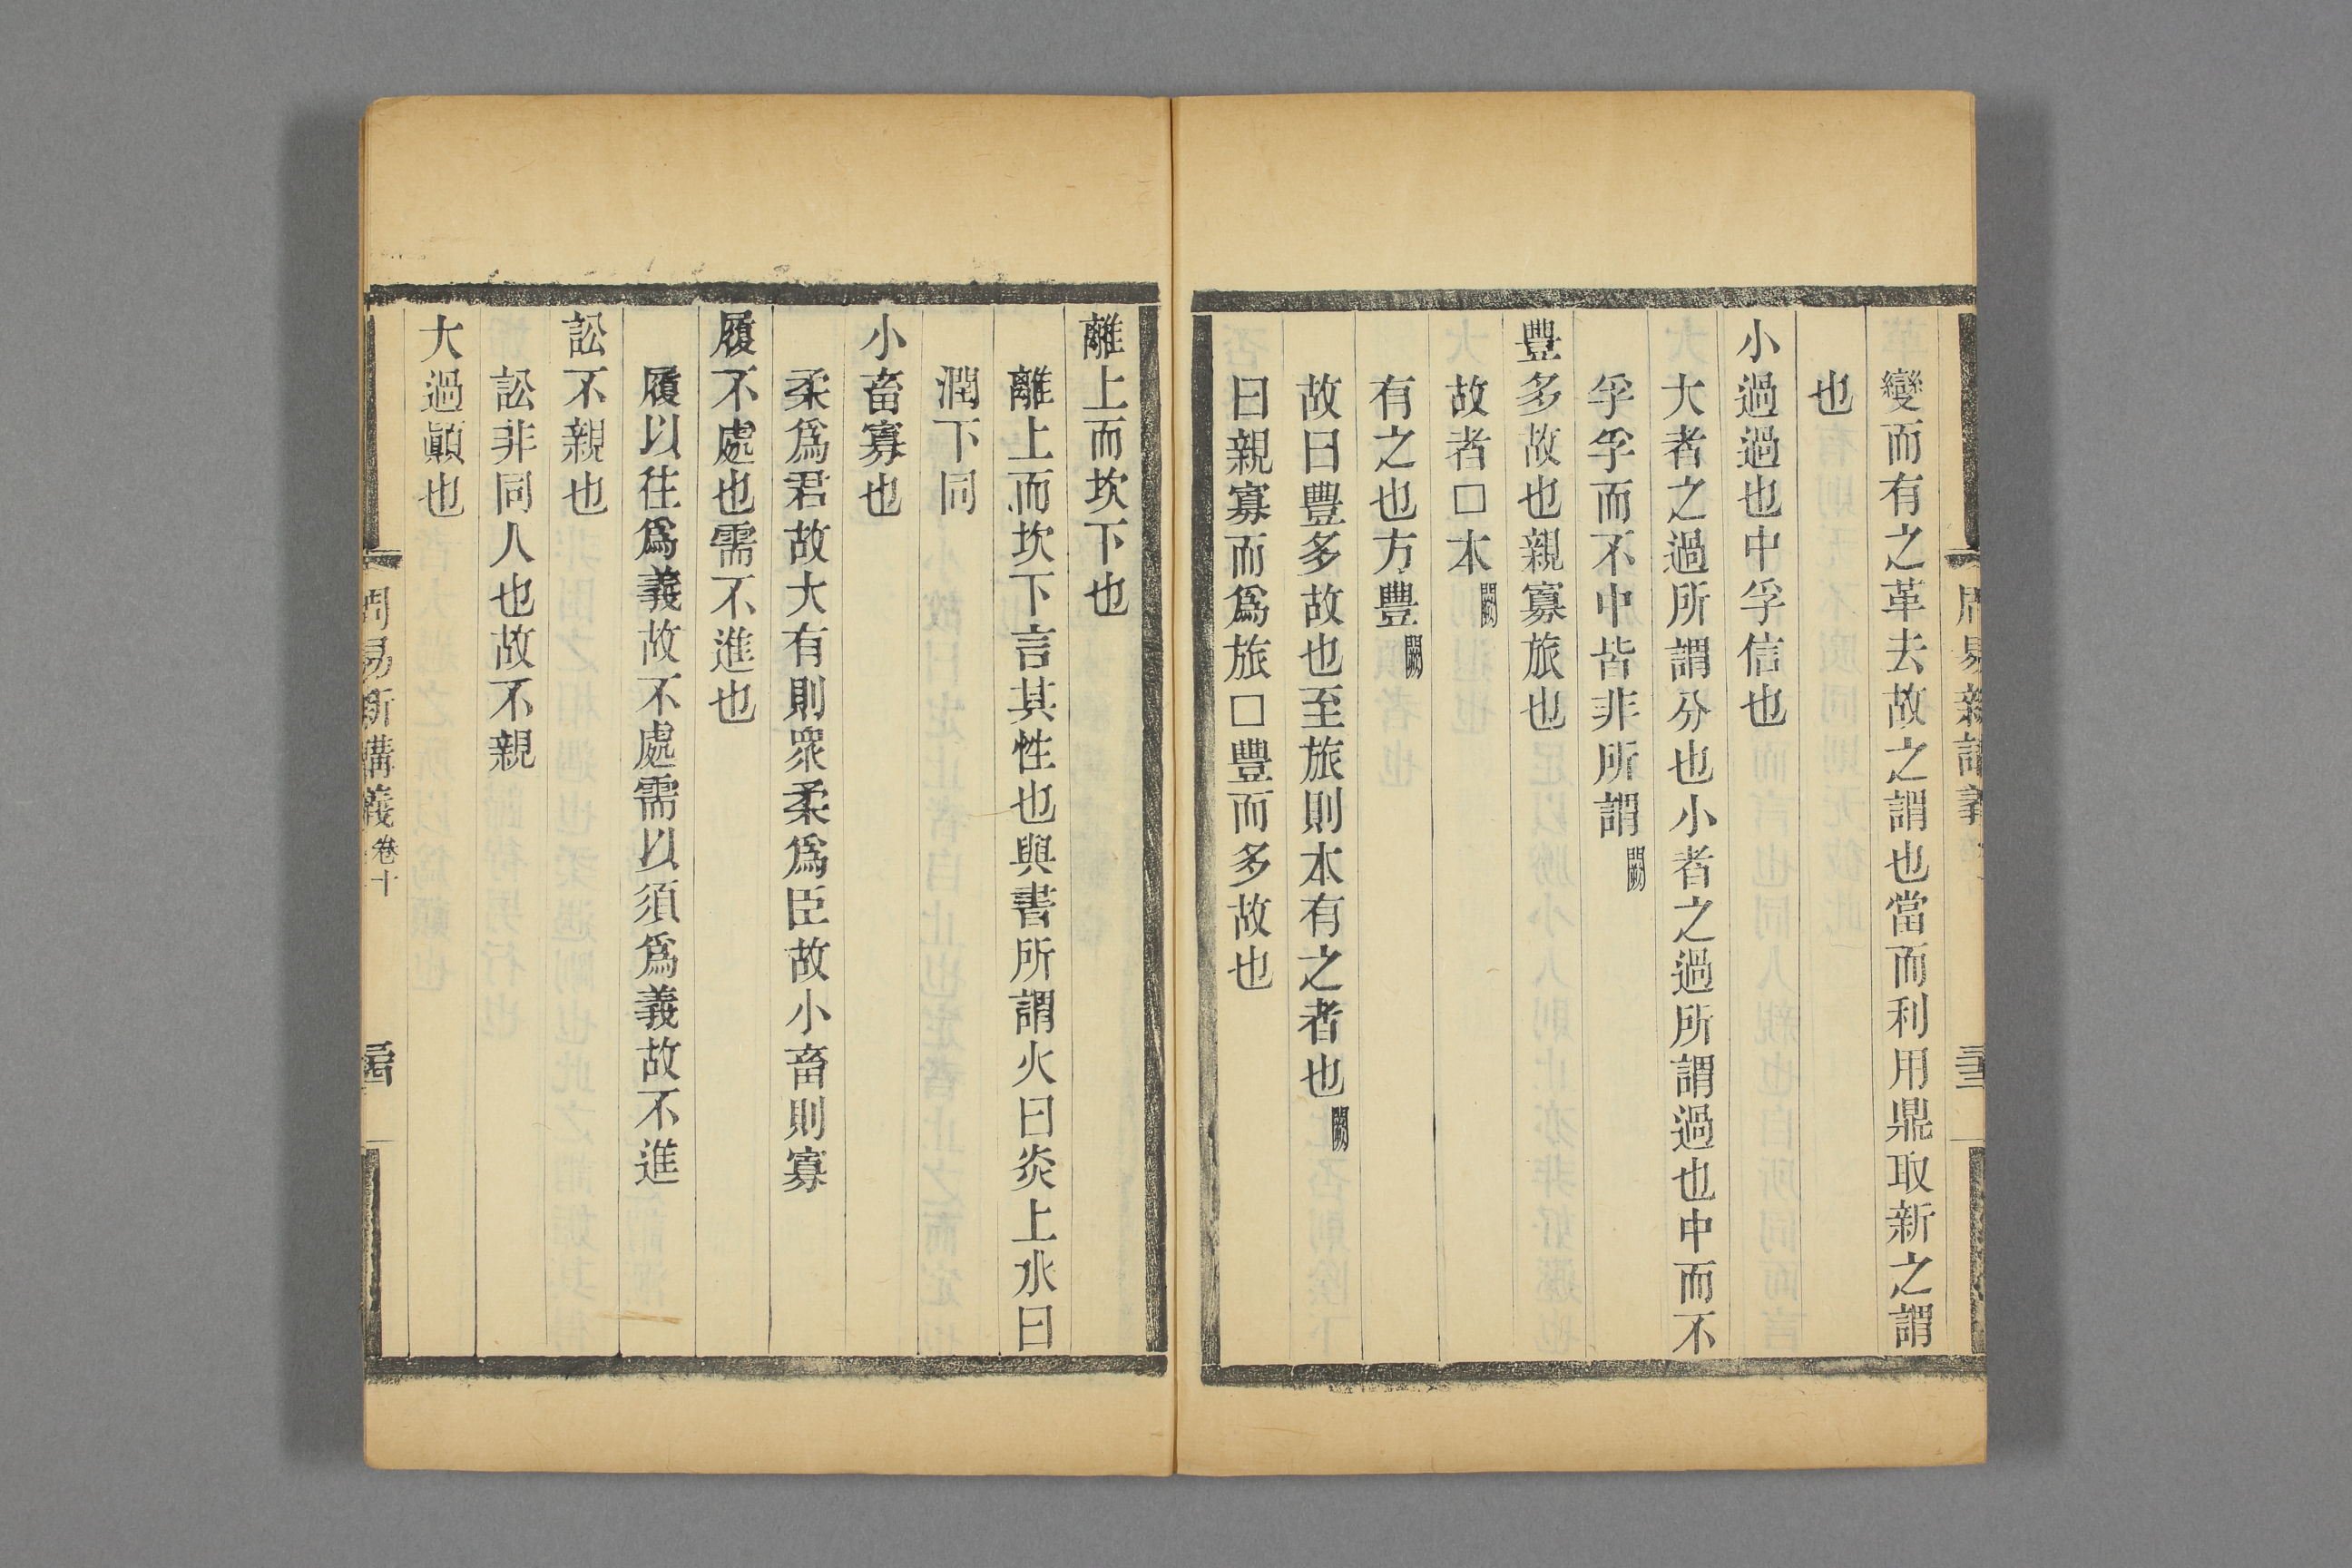 變而有之革去故之謂也當而利用鼎取新之謂
也
小過過也中孚信也
大者之過所謂分也小者之過所謂過也中而不
孚孚而不中皆非所謂闕
豐多故也親寡旅也
故者□本闕
有之也方豐闕
故曰豐多故也至旅則本有之者也闕
曰親寡而爲旅□豐而多故也
離上而坎下也
離上而坎下言其性也與書所謂火曰炎上水曰
潤下同
小畜寡也
柔爲君故大有則衆柔爲臣故小畜則寡
履不處也需不進也
履以往爲義故不處需以須爲義故不進
訟不親也
訟非同人也故不親
大過顚也
周易新講義 卷十